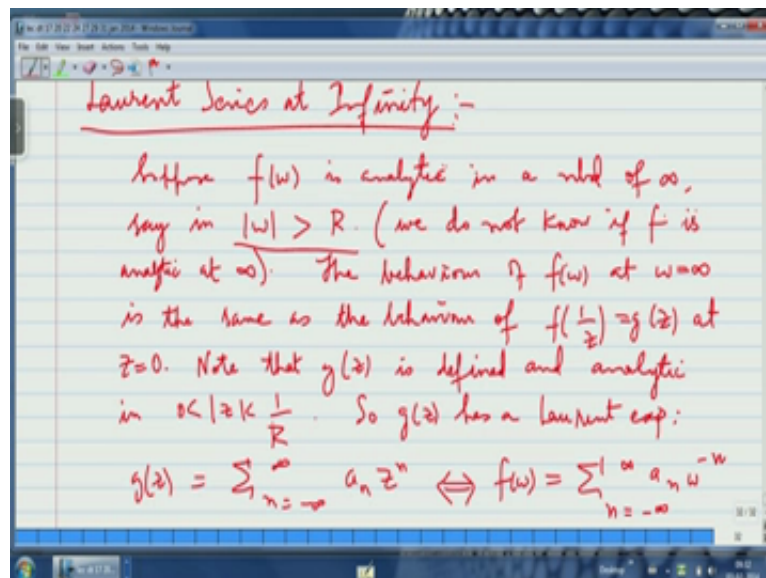 File Edit View Insert Actions Tools Help
Laurent Series at Infinity :-
Suppose f(w) is analytic in a nbd of ∞,
say in |w| > R. (we do not know if f is
analytic at ∞). The behaviour of f(w) at w=∞
is the same as the behaviour of f(1/z) = g(z) at
z=0. Note that g(z) is defined and analytic
in 0<|z|<1/R. So g(z) has a Laurent exp:
g(z) = Σ_{n=-∞}^{∞} a_n z^n ⇔ f(w) = Σ_{n=-∞}^{∞} a_n w^{-n}